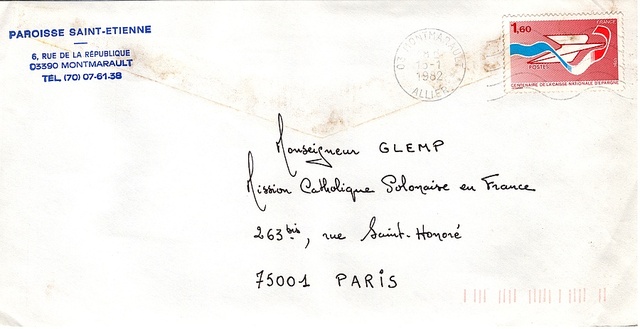 PAROISSE SAINT-ETIENNE
6, RUE DE LA RÉPUBLIQUE
03390 MONTMARAULT
TÉL. (70) 07-61-38
03 MONTMARAULT
15-1
1982
ALLIER
1,60
FRANCE
POSTES
CENTENAIRE DE LA CAISSE NATIONALE D'EPARGNE
Monseigneur GLEMP
Mission Catholique Polonaise en France
263 bis, rue Saint-Honoré
75001 PARIS